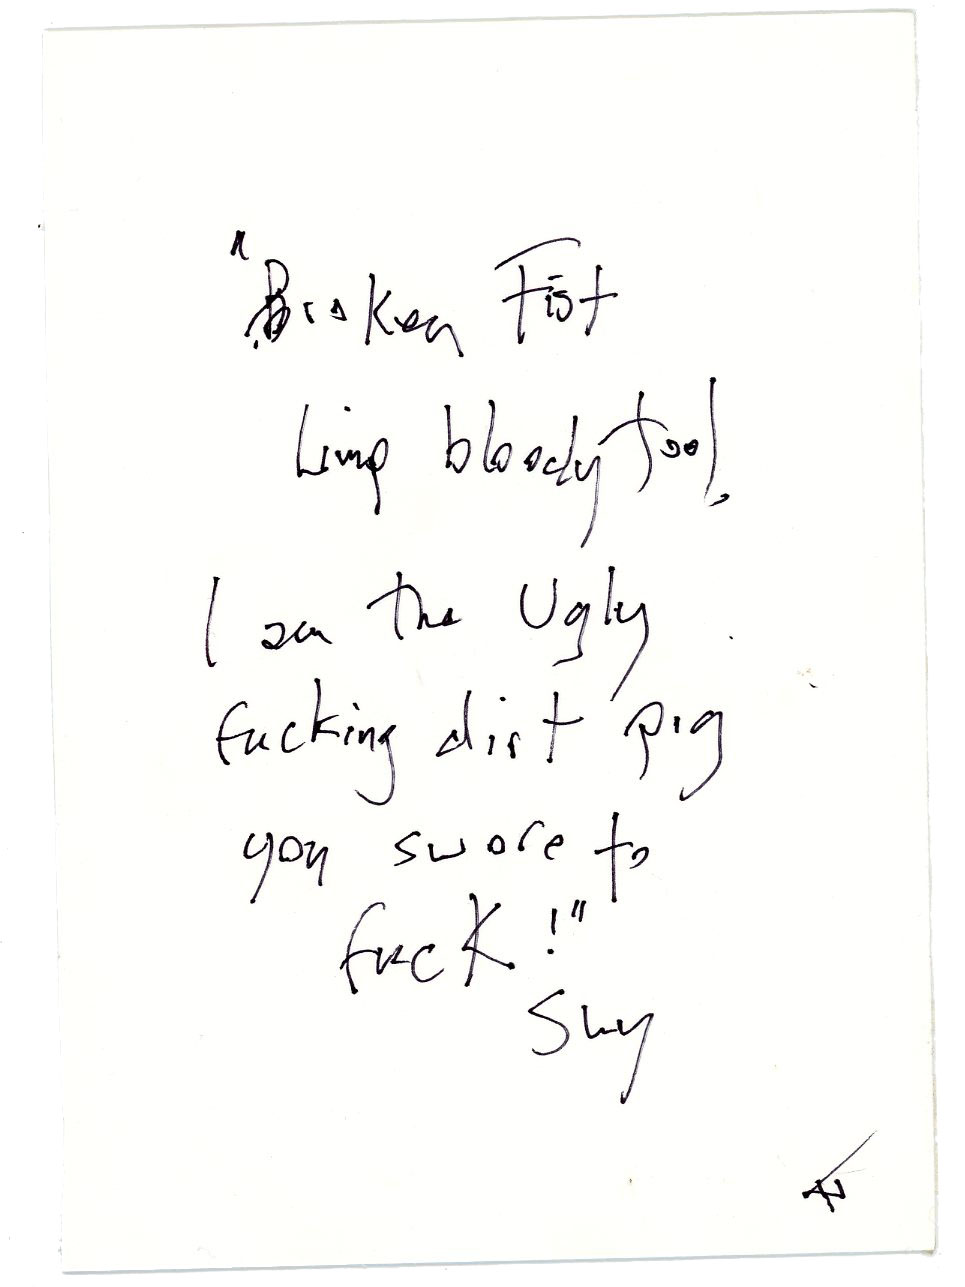 "Broken Fist
Limp bloody tool,
I am the Ugly
fucking dirt pig
you swore to
fuck!"